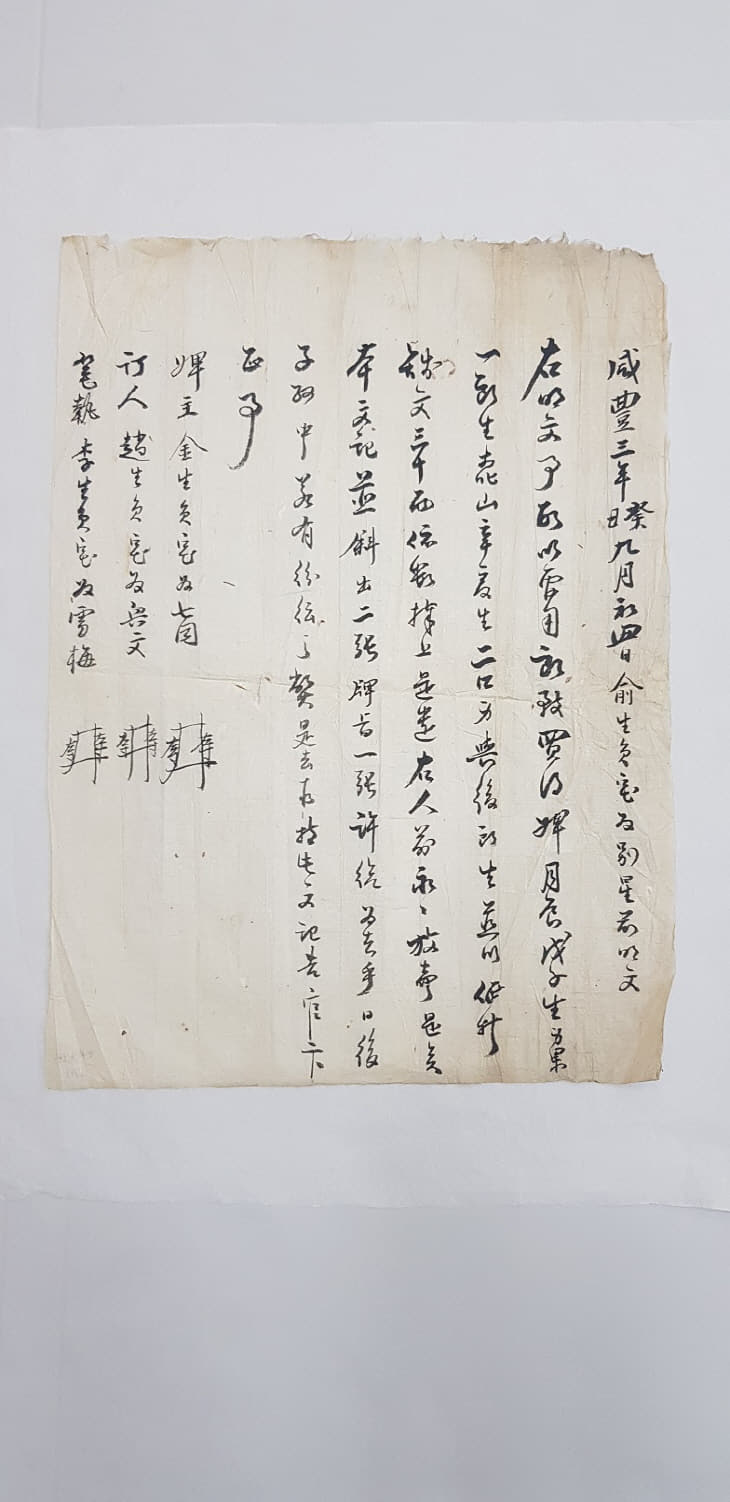 咸豐三年癸丑九月初四日 俞生員宅奴別星前明文
右明文事段以要用所致買得婢月辰戊子生身果
一所生山辛亥生二口身與後所生並以価折
錢文三十両依數捧上是遣右人前永永放賣是矣
本文記並斜出二張牌旨一張許給爲去乎日後
子孫中若有紛紜之弊是去等持此文記告官卞
正事
婢主金生員宅奴七用
訂人趙生員宅奴興文
筆執李生員宅奴雪梅